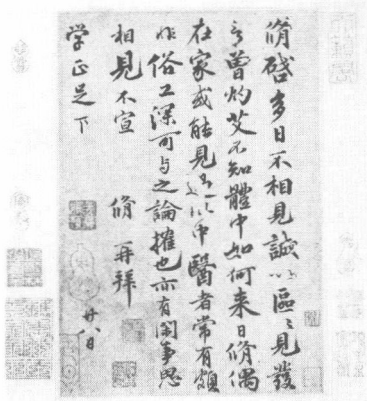 脩啓多日不相見誠以區〻見發
言曾灼艾不知體中如何来日脩偶
在家或能見過此中醫者常有頗
非俗工深可与之論搉也亦有閑事思
相見不宣 脩 再拜
廿八日
学正足下